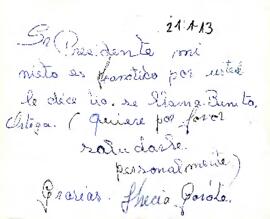 21-1-13
Sr Presidente mi
nieto es fanatico por usted
le dice tio. se llama Benito
Ortega. (Quiere por favor
saludarle
personalmente)
Gracias.